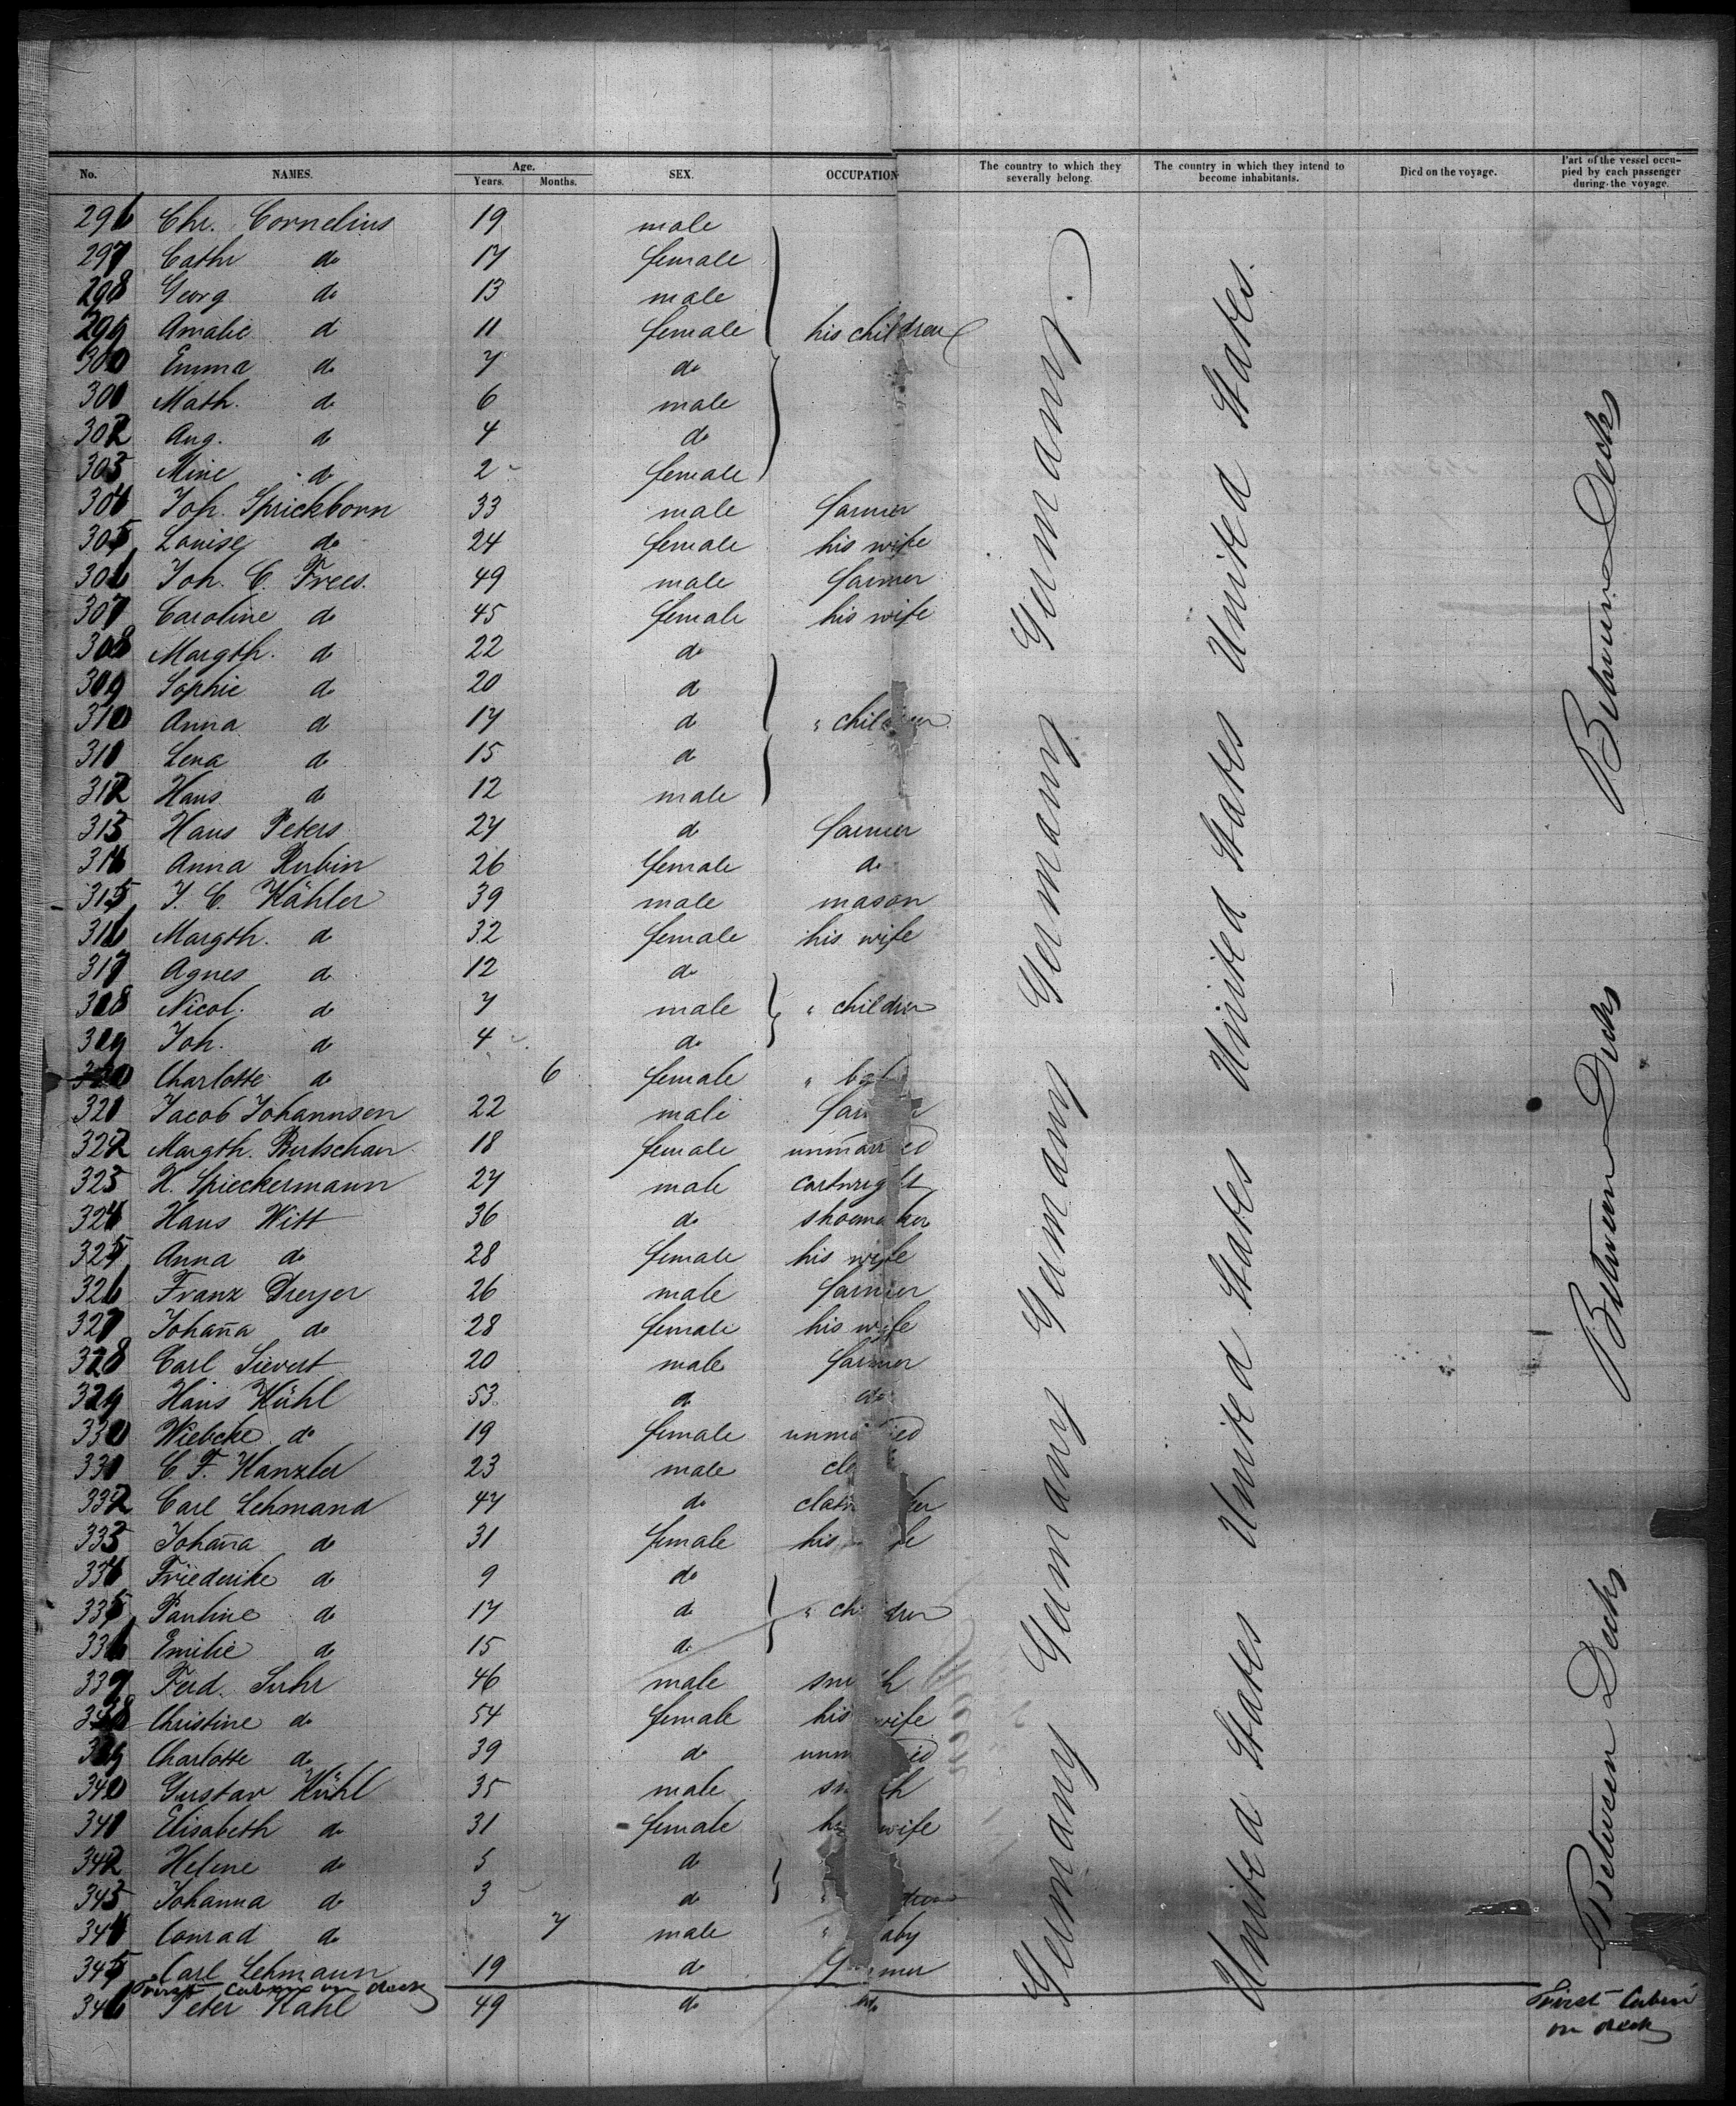 No. NAMES. Age. Years. Months. SEX. OCCUPATION The country to which they severally belong. The country in which they intend to become inhabitants. Died on the voyage. Part of the vessel occupied by each passenger during the voyage.
296 Chr. Cornelius 19 male
297 Cathr do 17 female
298 Georg do 13 male
299 Amalie d 11 female his children
300 Emma do 7 do
301 Math. do 6 male
302 Aug. do 4 do
303 Mine do 2 female
304 Joh. Sprickborn 33 male farmer
305 Louise do 24 female his wife
306 Joh. C. Frees. 49 male farmer
307 Caroline do 45 female his wife
308 Margth. d 22 do
309 Sophie do 20 d
310 Anna d 17 d " children
311 Lena do 15 d
312 Hans do 12 male
313 Hans Peters 27 d farmer
314 Anna Rubin 26 female do
315 J. C. Kähler 39 male mason
316 Margth. d 32 female his wife
317 Agnes d 12 d
318 Nicol. do 7 male " children
319 Joh. do 4 do
320 Charlotte do 6 female "
321 Jacob Johannsen 22 male farmer
322 Margth. 18 female unmarried
323 H. Spieckermann 27 male cartwright
324 Hans Witt 36 do shoemaker
325 Anna do 28 female his wife
326 Franz Dreyer 26 male farmer
327 Johaña do 28 female his wife
328 Carl Sievert 20 male farmer
329 Hans Kühl 53 d do
330 Wiebcke do 19 female unmarried
331 C. F. Kanzler 23 male
332 Carl Lehmand 47 do
333 Johaña do 31 female his
334 Friederike do 9 do
335 Pauline do 17 d " children
336 Emilie do 15 d
337 Ferd. Suhr 46 male smith
338 Christine do 54 female his wife
339 Charlotte do 39 do unmarried
340 Gustav Kühl 35 male smith
341 Elisabeth do 31 female his wife
342 Helene do 5 d
343 Johanna do 3 d "
344 Conrad do 7 male " baby
345 Carl Lehmann 19 d farmer
First Cabin on deck
346 Peter Kahl 49 d do
Germany.
Germany
Germany
Germany
Germany
United States.
United States
United States
United States
Between Decks
Between Decks
Between Decks
First Cabin
on deck